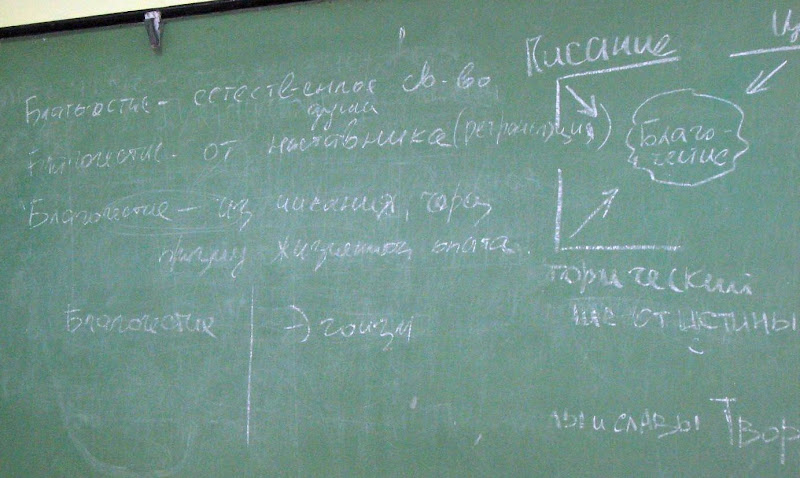 Благочестие - естественное св-во
души
Благочестие - от наставника (ретрансляция)
Благочестие - из писания, через
призму жизненного опыта.
Благочестие
Эгоизм
Писание
Ц
Благо-
честие
торический
ие от истины
лы и славы Твор